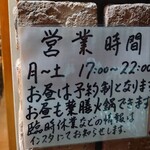 営業時間
月～土 17:00～22:00
お昼は予約制となります
お昼も薬膳火鍋できます
臨時休業などの情報は
インスタにてお知らせします。